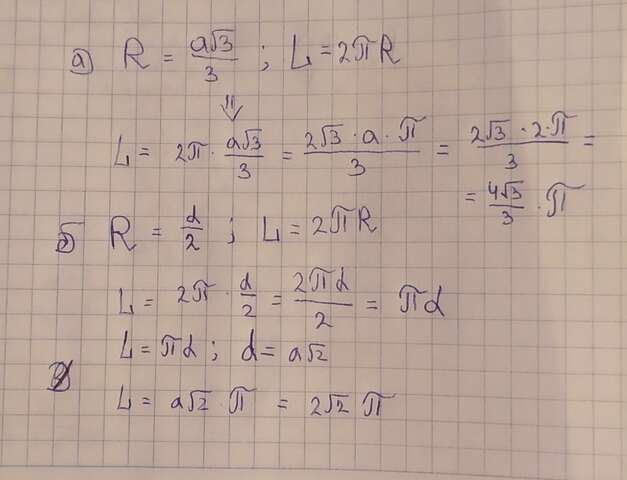 а) R = a√3/3 ; L = 2πR
⇓
L = 2π · a√3/3 = 2√3 · a · π/3 = 2√3 · 2 · π/3 =
= 4√3/3 · π
б) R = d/2 ; L = 2πR
L = 2π · d/2 = 2πd/2 = πd
L = πd ; d = a√2
L = a√2 · π = 2√2 π